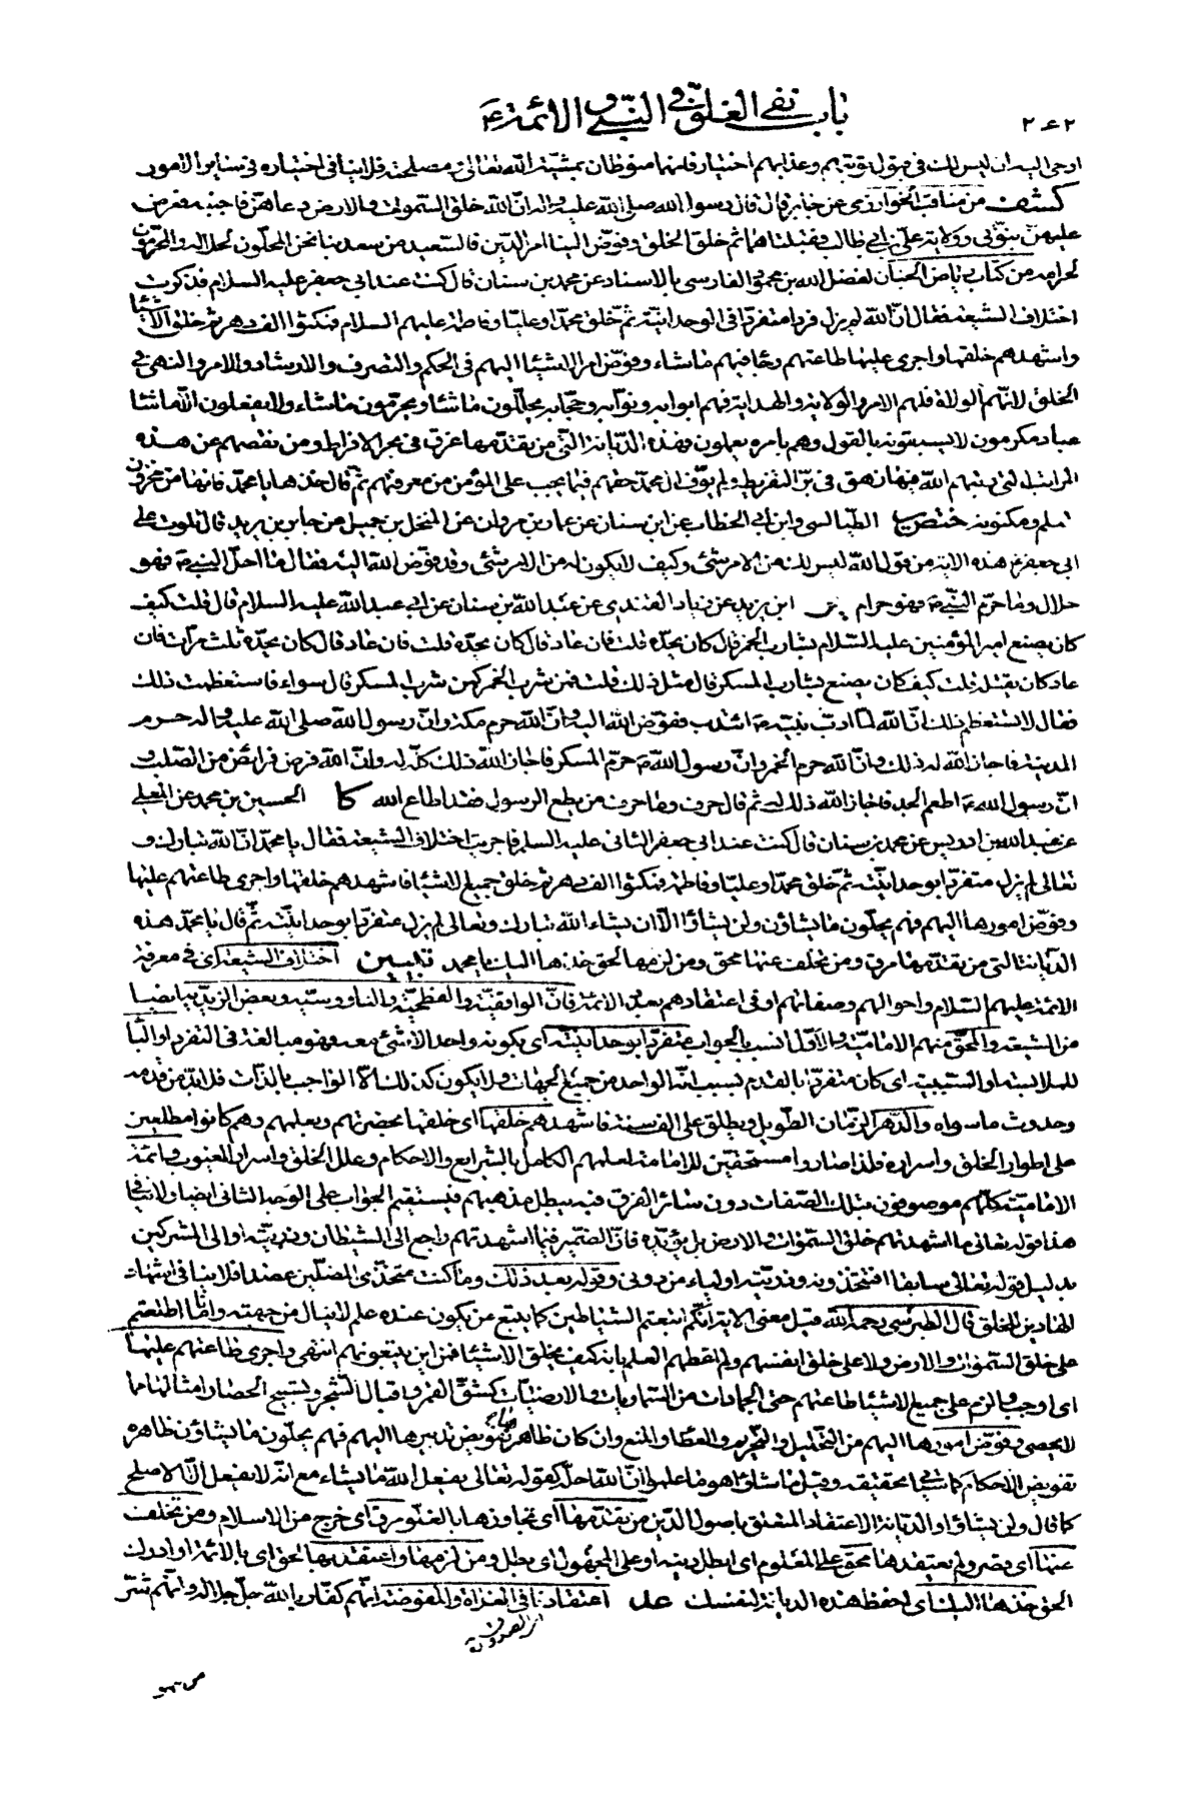 باب نفي الغلوّ في النبيّ و الائمة ع
٢۶٢
اوحى اليه ان ليس لك في قبول توبتهم وعذابهم اختيار فانهما منوطان بمشيّة الله تعالى و مصلحته فلا ينافي اختياره في سائر الامور
كشف من مناقب الخوارزمي عن جابر قال قال رسول الله صلى الله عليه واله انّ الله خلق السّموات والارض دعاهنّ فاجبنه فعرض
عليهنّ نبوّتي وولاية عليّ بن ابي طالب فقبلتاهما ثم خلق الخلق وفوّض الينا امر الدّين فالسّعيد من سعد بنا نحن المحلّون لحلاله والمحرّمون
لحرامه من كتاب رياض الجنان لفضل الله بن محمود الفارسي بالاسناد عن محمد بن سنان قال كنت عند ابي جعفر عليه السلام فذكرت
اختلاف الشيعة فقال انّ الله لم يزل فردا متفردا في الوحدانيّة ثمّ خلق محمّدا وعليّا وفاطمة عليهم السلام فمكثوا الف دهر ثم خلق الاشيا
واشهدهم خلقها واجرى عليها طاعتهم وجعل فيهم ماشاء وفوّض امر الاشيا اليهم في الحكم والتصرف والارشاد والامر والنهي في
الخلق لانّهم الولاة فلهم الامر والولاية والهداية فهم ابوابه ونوّابه وحجّابه يحلّلون ماشاء ويحرّمون ماشاء ولا يفعلون الّا ماشا
عباد مكرمون لا يسبقونه بالقول وهم بامره يعملون فهذه الدّيانة الّتي من تقدّمها غرق في بحر الافراط ومن نقصهم عن هذه
المراتب الّتي رتبهم الله فيها زهق في برّ التفريط ولم يوفّ ال محمّد حقهم فيما يجب على المؤمن من معرفتهم ثمّ قال خذها يا محمّد فانها من مخزون
العلم ومكنونه ختص الطيالسي وابن ابي الخطاب عن ابن سنان عن عمار بن مروان عن المنخل بن جميل عن جابر بن يزيد قال تلوت على
ابي جعفر ع هذه الاية من قول الله ليس لك من الامر شئ وكيف لا يكون له من الامر شئ وقد فوّض الله اليه فقال ما احل النبيّ ص فهو
حلال وما حرّم النّبيّ ص فهو حرام ير ابن يزيد عن زياد القندي عن عبد الله بن سنان عن ابي عبد الله عليه السلام قال قلت كيف
كان يصنع امير المؤمنين عليه السّلام بشارب الخمر قال كان يحدّه قلت فان عاد قال كان يحدّه قلت فان عاد قال كان يحدّه ثلث مرات فان
عاد كان يقتله قلت كيف كان يصنع بشارب المسكر قال مثل ذلك قلت فمن شرب الخمر كمن شرب المسكر قال سواء فاستعظمت ذلك
فقال لا تستعظم ذلك انّ الله لمّا ادب نبيّه ص ائتدب ففوّض الله اليه وانّ الله حرم مكة وانّ رسول الله صلى الله عليه واله حرم
المدينة فاجاز الله له ذلك وانّ الله حرم الخمر وانّ رسول الله ص حرّم المسكر فاجاز الله ذلك كلّه له وانّ الله فرض فرائض من الصلب و
انّ رسول الله ص اطعم الجد فاجاز الله ذلك له ثم قال حرف وما حرف من يطع الرسول فقد اطاع الله كا الحسين بن محمد عن المعلى
عن عبد الله بن ادريس عن محمد بن سنان قال كنت عند ابي جعفر الثاني عليه السلم فاجريت اختلاف الشيعة فقال يا محمد انّ الله تبارك و
تعالى لم يزل متفرّدا بوحدانيّته ثمّ خلق محمّدا وعليّا وفاطمة فمكثوا الف دهر ثم خلق جميع الاشيا فاشهدهم خلقها واجرى طاعتهم عليها
وفوّض امورها اليهم فهم يحلّون ما يشاؤن ويحرمون ما يشاؤن ولن يشاؤا الّا ان يشاء الله تبارك وتعالى ثمّ قال يا محمّد هذه
الدّيانة التي من تقدّمها مرق ومن تخلف عنها محق ومن لزمها لحق خذها اليك يا محمد تبيين اختلاف الشيعة اي في معرفة
الائمة عليهم السّلام واحوالهم وصفاتهم او في اعتقادهم بعدد الائمة فانّ الواقفيّة والفطحيّة والناووسيّة وبعض الزيديّة ايضا
من الشيعة والمحقّ منهم الاماميّة والاوّل انسب بالجواب متفرّدا بوحدانيّته اي بكونه واحدا لا شئ معه فهو مبالغة في التفرد او الباء
للملابسة او السّببيّة اي كان متفرّدا بالقدم بسبب انّه الواحد من جميع الجهات ولا يكون كذلك الّا الواجب بالذّات فلا بدّ من قدمه
وحدوث ماسواه والدّهر الزّمان الطّويل ويطلق على الف سنة فاشهدهم خلقها اي خلقها بحضرتهم وبعلمهم وهم كانوا مطلعين
على اطوار الخلق واسراره فلذا صاروا مستحقين للامامة لعلمهم الكامل بالشرايع والاحكام وعلل الخلق واسرار الغيوب وائمّة
الاماميّة كلّهم موصوفون بتلك الصّفات دون سائر الفرق فبه يبطل مذهبهم فيستقيم الجواب على الوجه الثاني ايضا ولا ينافي
هذا قوله تعالى ما اشهدتهم خلق السّموات والارض بل يؤيّده فانّ الضّمير في ما اشهدتهم راجع الى الشيطان وذريّته او الى المشركين
بدليل قوله تعالى سابقا افتتخذونه وذريّته اولياء من دوني وقوله بعد ذلك وما كنت متخذي المضلّين عضدا فلا ينافي اشهاد
الهادين للخلق قال الطبرسي رحمه الله قيل معنى الاية انّكم اتبعتم الشياطين كما يتبع من يكون عنده علم لا ينال من جهته وانا ما اطلعتهم
على خلق السّموات والارض ولا على خلق انفسهم ولم اعطهم العلم بانه كيف يخلق الاشيا فمن اين يتبعونهم انتهى واجرى طاعتهم عليها
اي اوجب والزم على جميع الاشيا طاعتهم حتى الجمادات من السّماويات والارضيّات كشقّ القمر واقبال الشّجر وتسبيح الحصا وامثالها مما
لا يحصى وفوّض امورها اليهم من التّحليل والتّحريم والعطا والمنع وان كان ظاهره تفويض تدبيرها اليهم فهم يحلّون ما يشاؤن ظاهره
تفويض الاحكام كما سيأتي تحقيقه وقيل ماشاؤا هو ما علموا انّ الله احلّه كقوله تعالى يفعل الله ما يشاء مع انّه لا يفعل الّا الاصلح
كما قال ولن يشاؤا والدّيانة الاعتقاد المتعلق باصول الدّين من تقدّمها اي تجاوزها بالغلوّ مرق اي خرج من الاسلام ومن تخلف
عنها اي قصر ولم يعتقدها محق على المعلوم اي ابطل دينه او على المجهول اي بطل ومن لزمها واعتقد بها لحق اي بالائمة او ادرك
الحق خذها اليك اي احفظ هذه الديانة لنفسك عد اعتقادنا في الغلاة والمفوضة انّهم كفّار بالله جلّ جلاله وانّهم شرّ